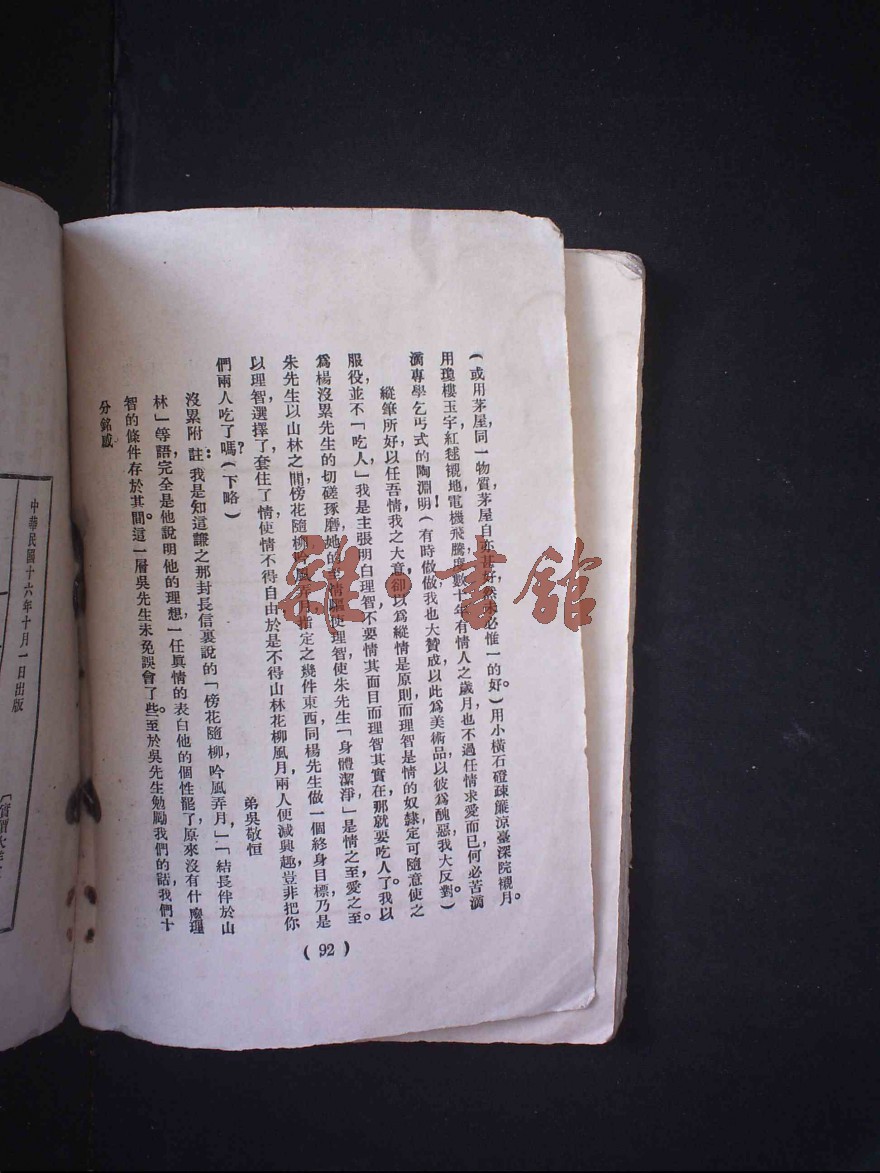 (或用茅屋,同一物質茅屋自亦甚好,然未必惟一的好。)用小橫石磴疎簾涼臺深院襯月。
用瓊樓玉宇紅毬襯地電機飛騰度數十年有情人之歲月也不過任情求愛而已何必苦滴
滴專學乞丐式的陶淵明!(有時做做我也大贊成以此爲美術品以彼爲醜惡我大反對)
縱筆所好以任吾情我之大意,卻以爲縱情是原則而理智是情的奴隸定可隨意使之
服役並不「吃人」我是主張明白理智不要情其面目而理智其實在那就要吃人了。我以
爲楊沒累先生的切磋琢磨,她的至情驅使理智使朱先生「身體潔淨」是情之至愛之至。
朱先生以山林之間傍花隨柳吟風弄月指定之幾件東西同楊先生做一個終身目標乃是
以理智選擇了套住了情使情不得自由於是不得山林花柳風月兩人便減興趣豈非把你
們兩人吃了嗎?(下略)
弟吳敬恒
沒累附註:我是知道謙之那封長信裏說的「傍花隨柳,吟風弄月」「結長伴於山
林」等語完全是他說明他的理想,一任眞情的表白他的個性罷了,原來沒有什麼理
智的條件存於其間。這一層吳先生未免誤會了些。至於吳先生勉勵我們的話,我們十
分銘感
(92)
中華民國十六年十月一日出版
雜·書館